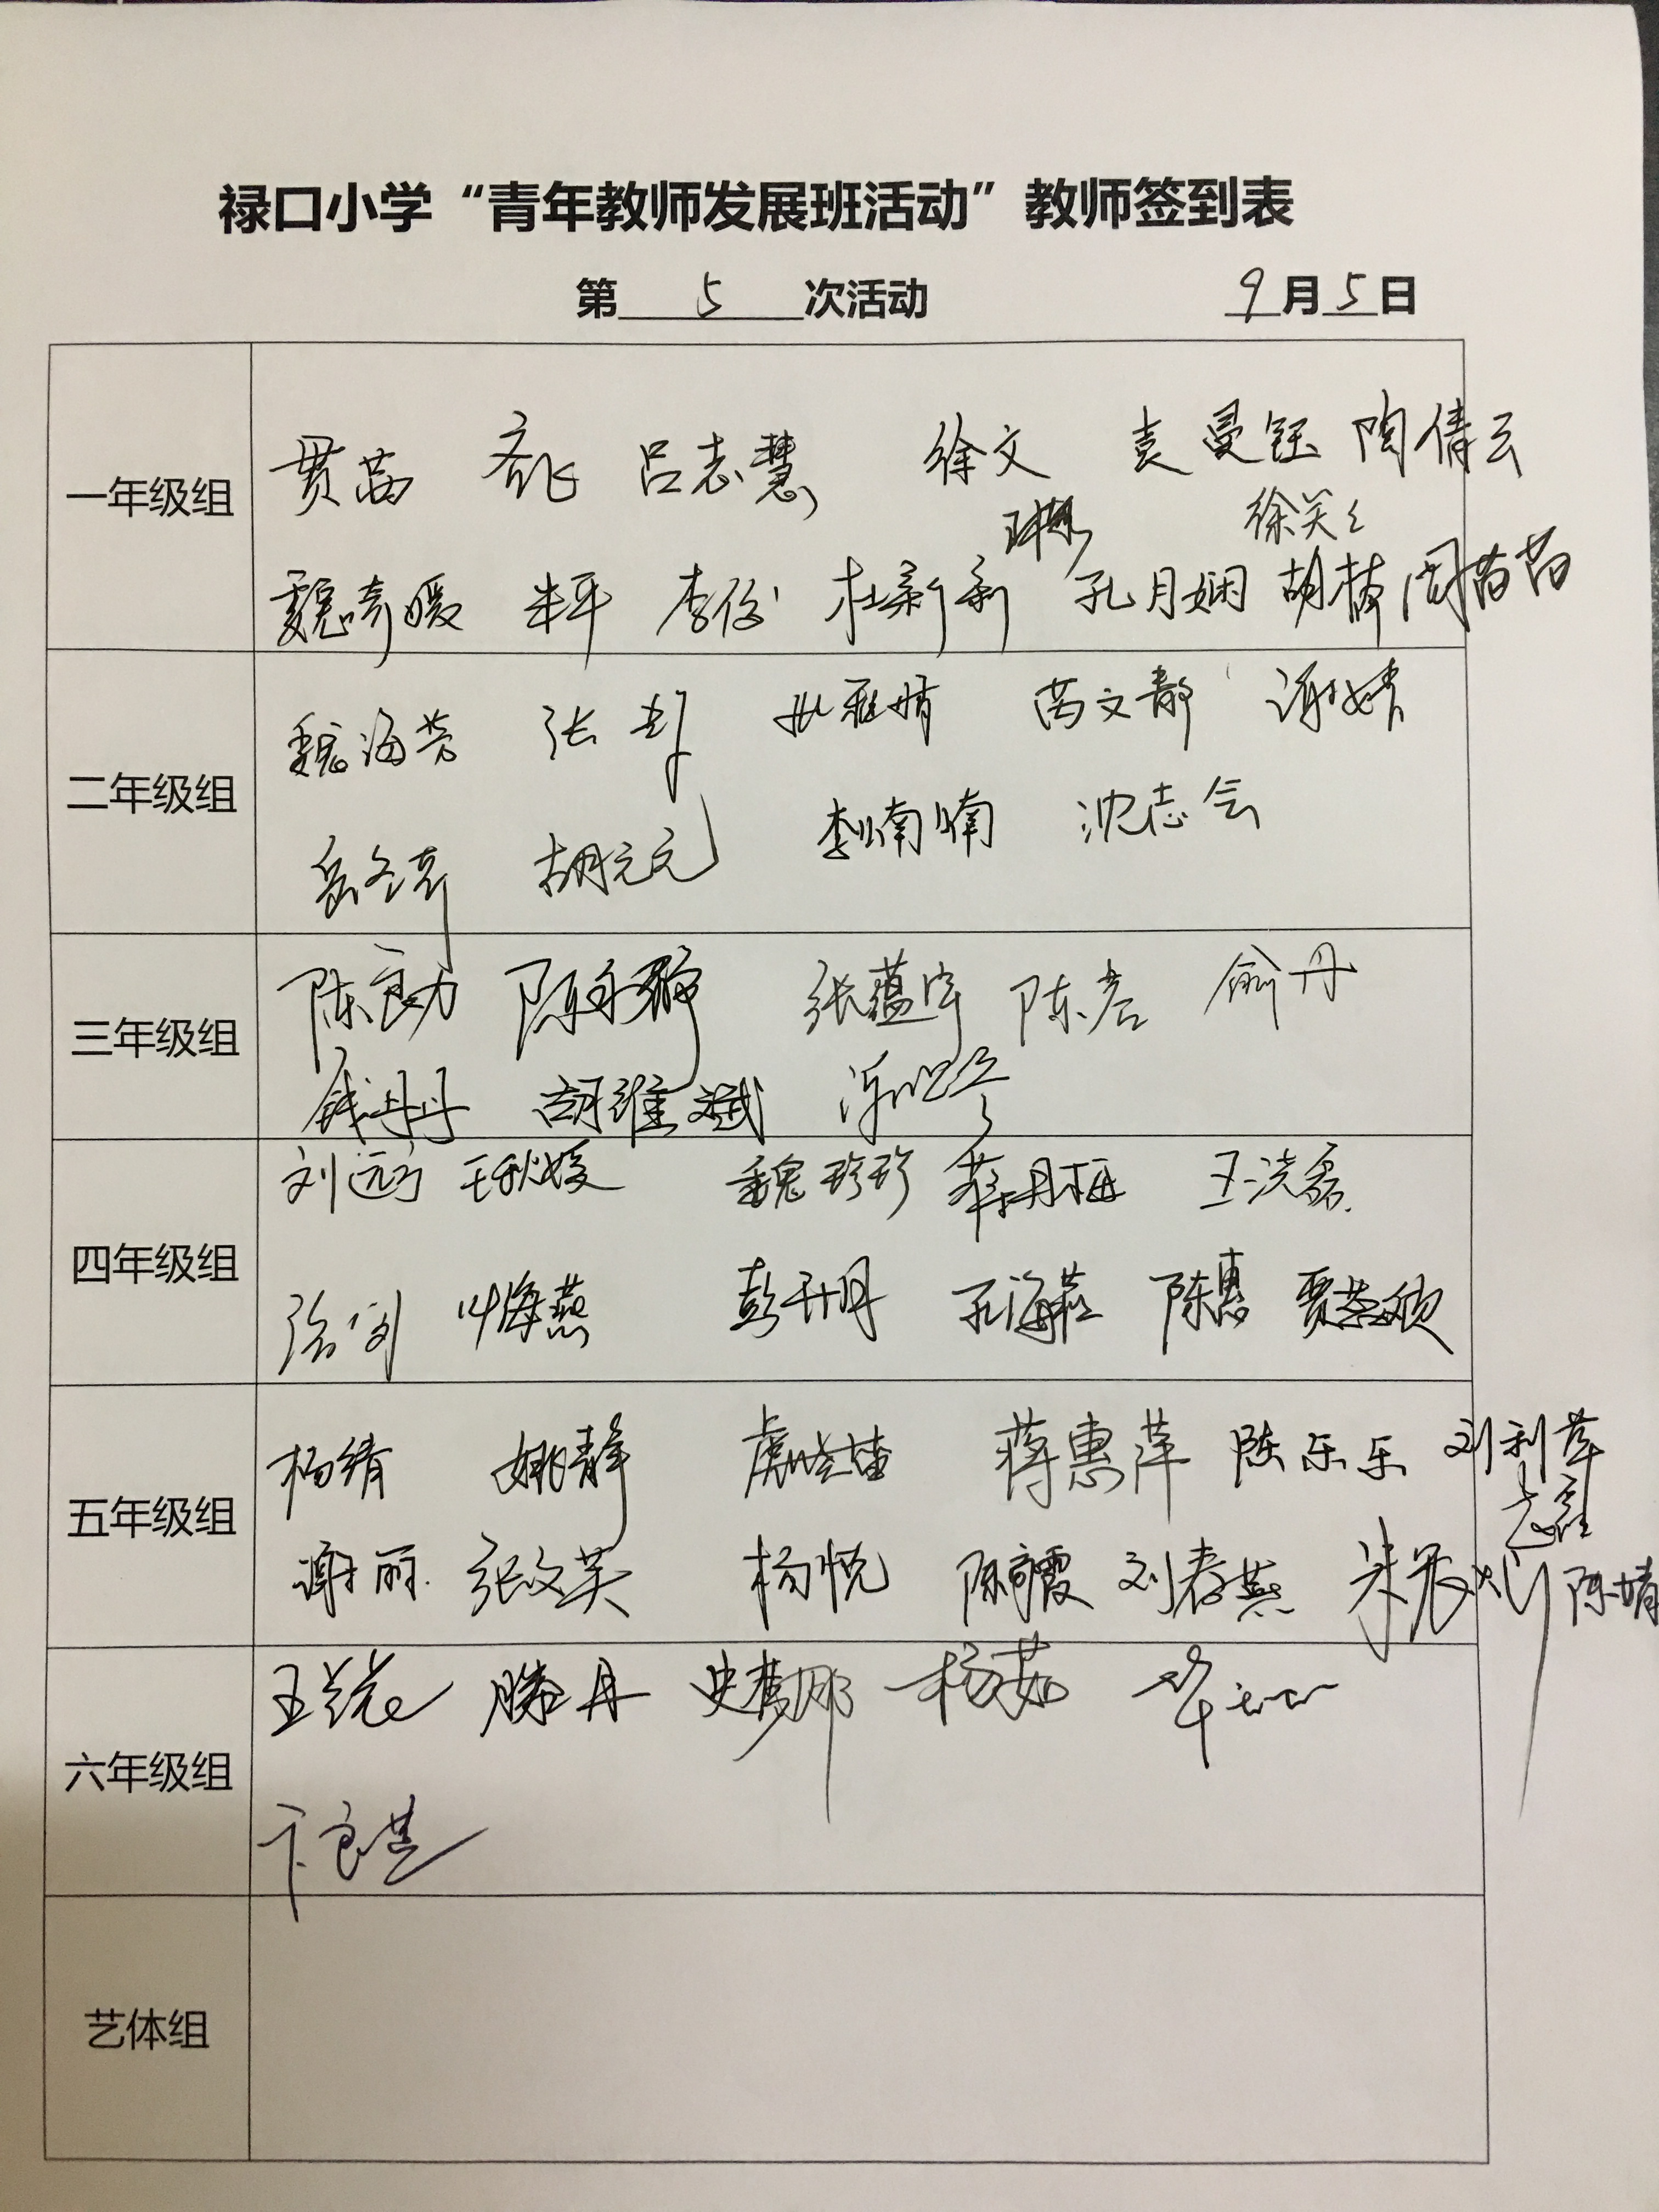 禄口小学“青年教师发展班活动”教师签到表
第 5 次活动 9月5日
一年级组
贾茜 吕志慧 徐文 袁曼钰 陶倩云
徐笑笑
魏奇媛 朱平 李俊 杜新新 孔月娴 胡楠 周苗苗
二年级组
魏海芳 张 芮文静 谢婧
岳冬 胡元元 李喃喃 沈志会
三年级组
陈良勤 张蕴宇 陈彦 俞丹
钱丹丹 胡维斌
四年级组
刘远宁 王秋媛 魏珍珍 薛丹梅 王洪磊
叶海燕 彭丹丹 孔海燕 陈惠 贾
五年级组
杨婧 姚静 虞晓 蒋惠萍 陈乐乐 刘利萍
谢丽 张文芙 杨悦 陈霞 刘春燕 朱 陈婧
六年级组
王锐 滕丹 史梦娜 杨茹
卞良
艺体组